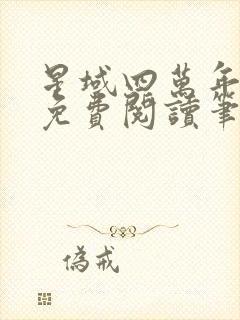 星域四萬年
免費閱讀筆
偽戒